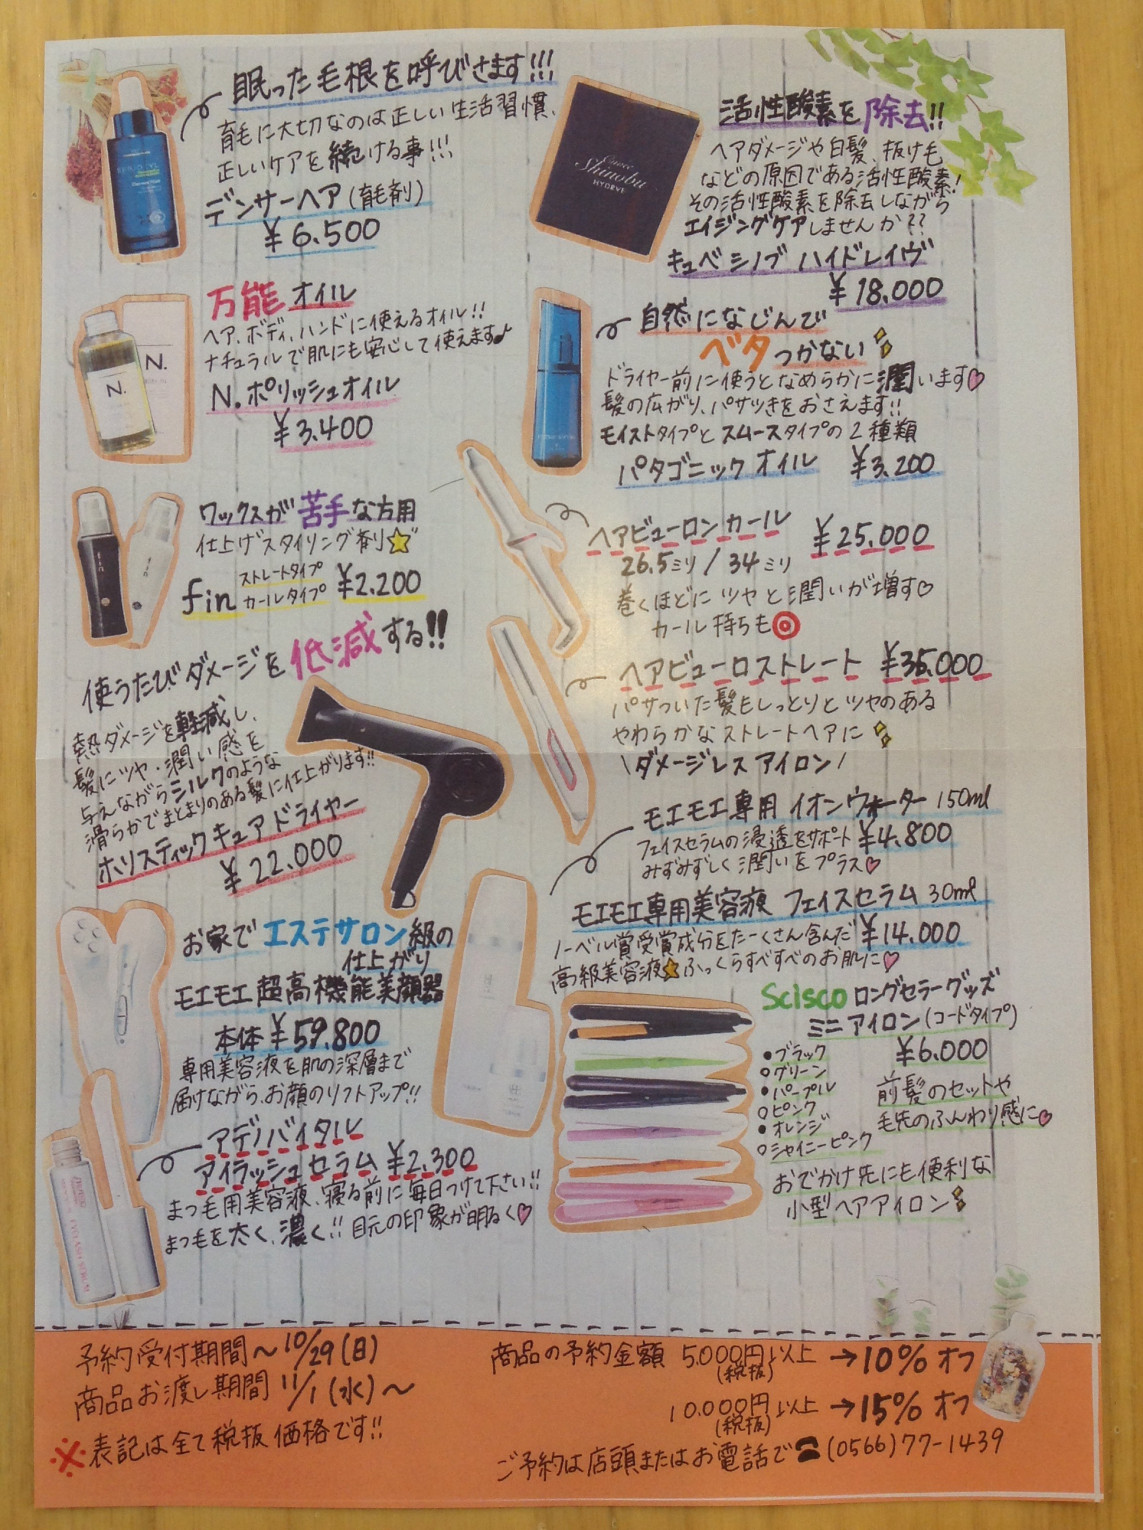 眠った毛根を呼びさます!!!
育毛に大切なのは正しい生活習慣、
正しいケアを続ける事!!!
デンサーヘア(育毛剤)
¥6.500
活性酸素を除去!!
ヘアダメージや白髪、抜け毛
などの原因である活性酸素!
その活性酸素を除去しながら
エイジングケアしませんか??
キュベシノブ ハイドレイヴ
¥18.000
Cuvee
Shinobu
HYDRVE
万能オイル
ヘア、ボディ、ハンドに使えるオイル!!
ナチュラルで肌にも安心して使えます♪
N.ポリッシュオイル
¥3.400
N.
N.
自然になじんで
ベタつかない
ドライヤー前に使うとなめらかに潤います♡
髪の広がり、パサツきをおさえます!!
モイストタイプとスムースタイプの2種類
パタゴニックオイル ¥3.200
ワックスが苦手な方用
仕上げスタイリング剤☆
fin ストレートタイプ
カールタイプ ¥2.200
fin
fin
ヘアビューロンカール ¥25.000
26.5ミリ/34ミリ
巻くほどにツヤと潤いが増す♡
カール持ちも◎
使うたびダメージを低減する!!
熱ダメージを軽減し、
髪にツヤ・潤い感を
与えながらシルクのような
滑らかでまとまりのある髪に仕上がります!!
ホリスティックキュアドライヤー
¥22.000
ヘアビューロストレート ¥35.000
パサついた髪もしっとりとツヤのある
やわらかなストレートヘアに
\ダメージレスアイロン/
モエモエ専用イオンウォーター 150ml
フェイスセラムの浸透をサポート ¥4.800
みずみずしく潤いをプラス♡
モエモエ専用美容液 フェイスセラム 30ml
ノーベル賞受賞成分をたーくさん含んだ ¥14.000
高級美容液★ふっくらすべすべのお肌に♡
お家でエステサロン級の
仕上がり
モエモエ超高機能美顔器
本体¥59.800
専用美容液を肌の深層まで
届けながら、お顔のリフトアップ!!
アデノバイタル
アイラッシュセラム ¥2,300
まつ毛用美容液、寝る前に毎日つけて下さい!!
まつ毛を太く、濃く!!目元の印象が明るく♡
Scisco ロングセラーグッズ
ミニアイロン(コードタイプ)
¥6.000
●ブラック
○グリーン
●パープル
○ピンク
●オレンジ
○シャイニーピンク
前髪のセットや
毛先のふんわり感に♡
おでかけ先にも便利な
小型ヘアアイロン
予約受付期間〜10/29(日)
商品お渡し期間 11/1(水)〜
※表記は全て税抜価格です!!
商品の予約金額 5.000円以上→10%オフ
(税抜)
10.000円以上→15%オフ
(税抜)
ご予約は店頭またはお電話で☎(0566)77-1439